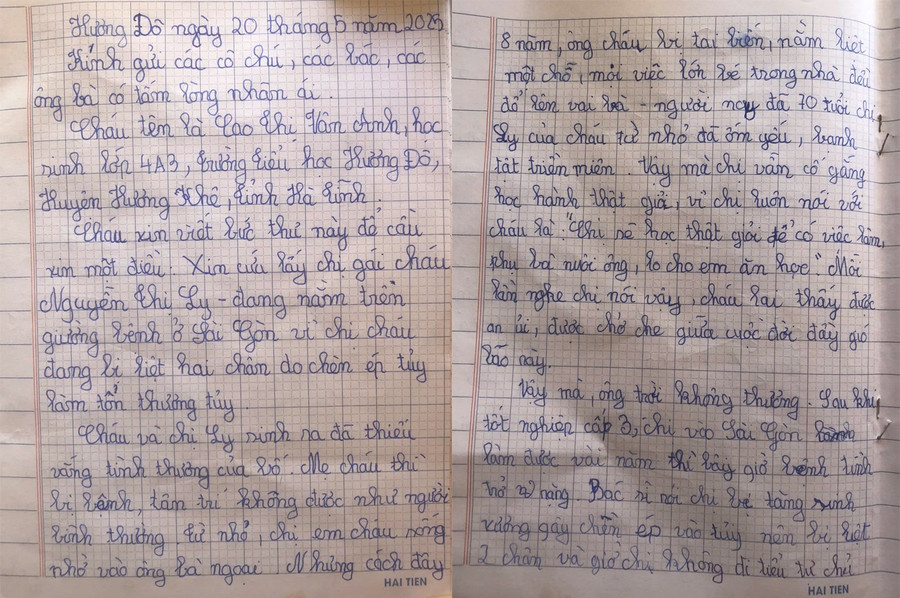 Hương Đô ngày 20 tháng 5 năm 2025
Kính gửi các cô chú, các bác, các
ông bà có tấm lòng nhân ái.
Cháu tên là Cao Thị Vân Anh, học
sinh lớp 4A3, trường tiểu học Hương Đô,
Huyện Hương Khê, tỉnh Hà Tĩnh.
Cháu xin viết bức thư này để cầu
xin một điều. Xin cứu lấy chị gái cháu
Nguyễn Thị Ly - đang nằm trên
giường bệnh ở Sài Gòn vì chị cháu
đang bị liệt hai chân do chèn ép tủy
làm tổn thương tủy.
Cháu và chị Ly sinh ra đã thiếu
vắng tình thương của bố. Mẹ cháu thì
bị bệnh, tâm trí không được như người
bình thường. Từ nhỏ, chị em cháu sống
nhờ vào ông bà ngoại. Nhưng cách đây
HAI TIEN
8 năm, ông cháu bị tai biến, nằm liệt
một chỗ, mọi việc lớn bé trong nhà đều
đổ lên vai bà - người nay đã 70 tuổi chị
Ly của cháu từ nhỏ đã ốm yếu, bệnh
tật triền miên. Vậy mà chị vẫn cố gắng
học hành thật giỏi, vì chị luôn nói với
cháu là: "Chị sẽ học thật giỏi để có việc làm,
phụ bà nuôi ông, lo cho em ăn học." Mỗi
lần nghe chị nói vậy, cháu lại thấy được
an ủi, được chở che giữa cuộc đời đầy gió
bão này.
Vậy mà, ông trời không thương. Sau khi
tốt nghiệp cấp 3, chị vào Sài Gòn
làm được vài năm thì bây giờ bệnh tình
trở nặng. Bác sĩ nói chị bị tăng sinh
xương gây chèn ép vào tủy nên bị liệt
2 chân và giờ chị không đi tiểu tự chủ
HAI TIEN